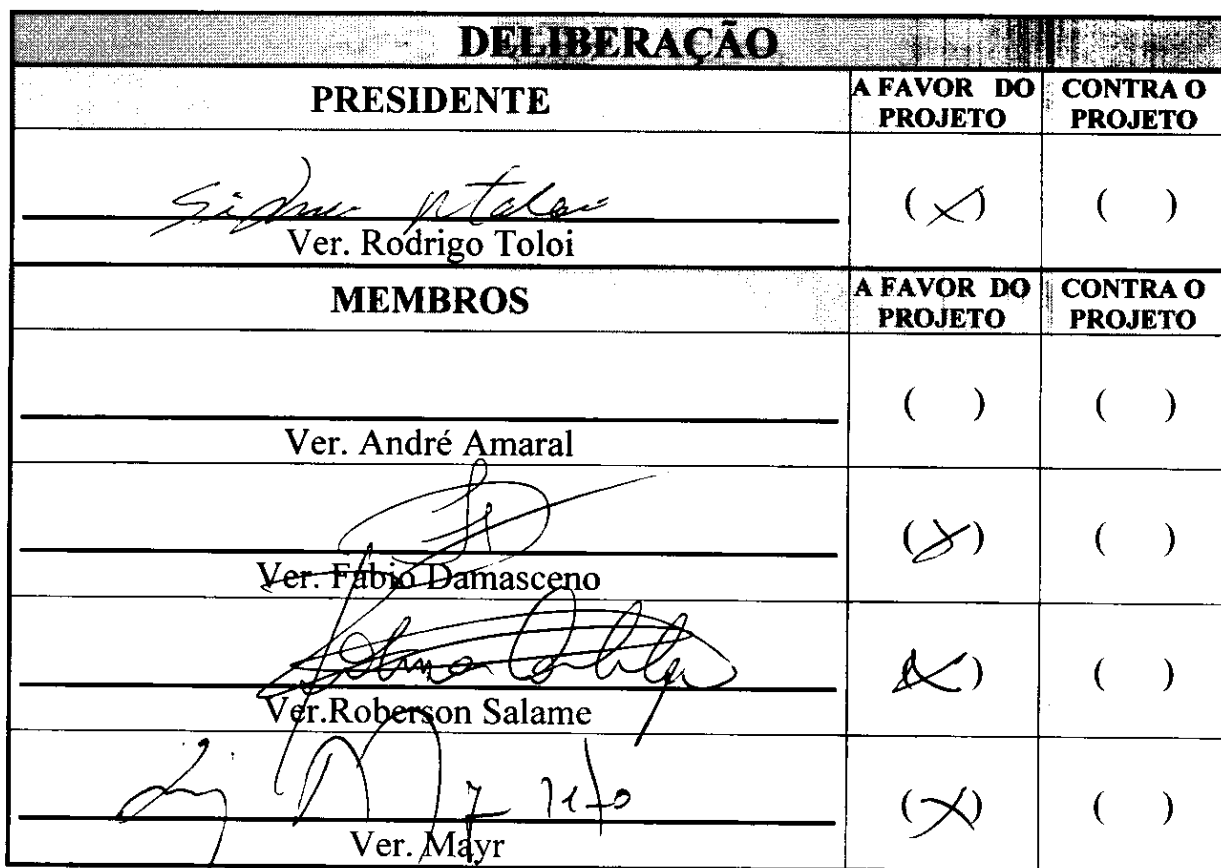 DELIBERAÇÃO
PRESIDENTE
A FAVOR DO
PROJETO
CONTRA O
PROJETO
(X)
( )
Ver. Rodrigo Toloi
MEMBROS
A FAVOR DO
PROJETO
CONTRA O
PROJETO
( )
( )
Ver. André Amaral
(X)
( )
Ver. Fábio Damasceno
(X)
( )
Ver.Roberson Salame
(X)
( )
Ver. Mayr